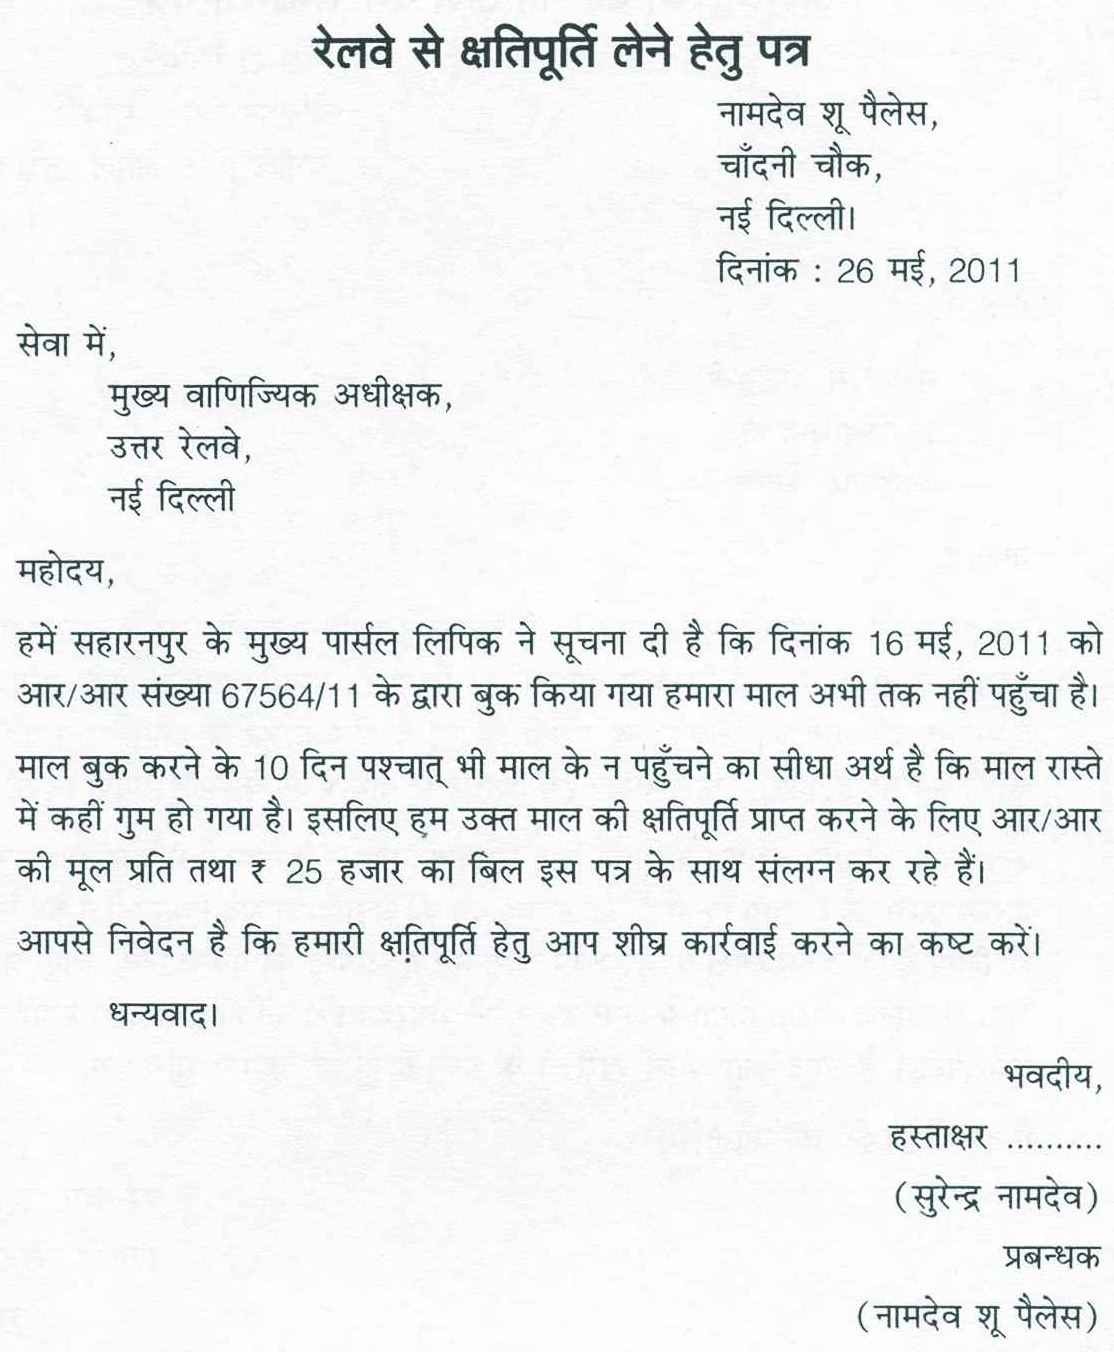 रेलवे से क्षतिपूर्ति लेने हेतु पत्र
नामदेव शू पैलेस,
चाँदनी चौक,
नई दिल्ली।
दिनांक : 26 मई, 2011
सेवा में,
मुख्य वाणिज्यिक अधीक्षक,
उत्तर रेलवे,
नई दिल्ली
महोदय,
हमें सहारनपुर के मुख्य पार्सल लिपिक ने सूचना दी है कि दिनांक 16 मई, 2011 को
आर/आर संख्या 67564/11 के द्वारा बुक किया गया हमारा माल अभी तक नहीं पहुँचा है।
माल बुक करने के 10 दिन पश्चात् भी माल के न पहुँचने का सीधा अर्थ है कि माल रास्ते
में कहीं गुम हो गया है। इसलिए हम उक्त माल की क्षतिपूर्ति प्राप्त करने के लिए आर/आर
की मूल प्रति तथा ₹ 25 हजार का बिल इस पत्र के साथ संलग्न कर रहे हैं।
आपसे निवेदन है कि हमारी क्षतिपूर्ति हेतु आप शीघ्र कार्रवाई करने का कष्ट करें।
धन्यवाद।
भवदीय,
हस्ताक्षर ..........
(सुरेन्द्र नामदेव)
प्रबन्धक
(नामदेव शू पैलेस)